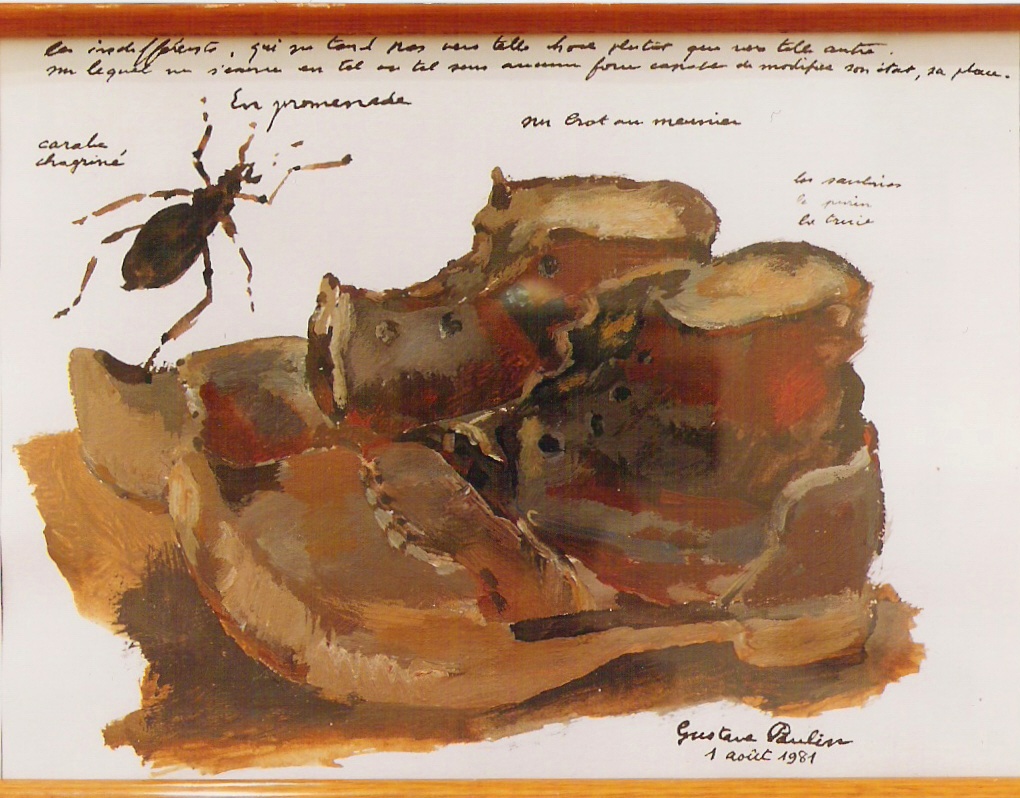 les indifférents, qui ne tend pas vers telle chose plutôt que vers telle autre.
sur lequel ne s'exerce en tel ou tel sens aucune force capable de modifier son état, sa place.
En promenade
carabe
chagriné
sur Crot au meunier
les
le purin
la truie
Gustave Paulin
1 août 1981